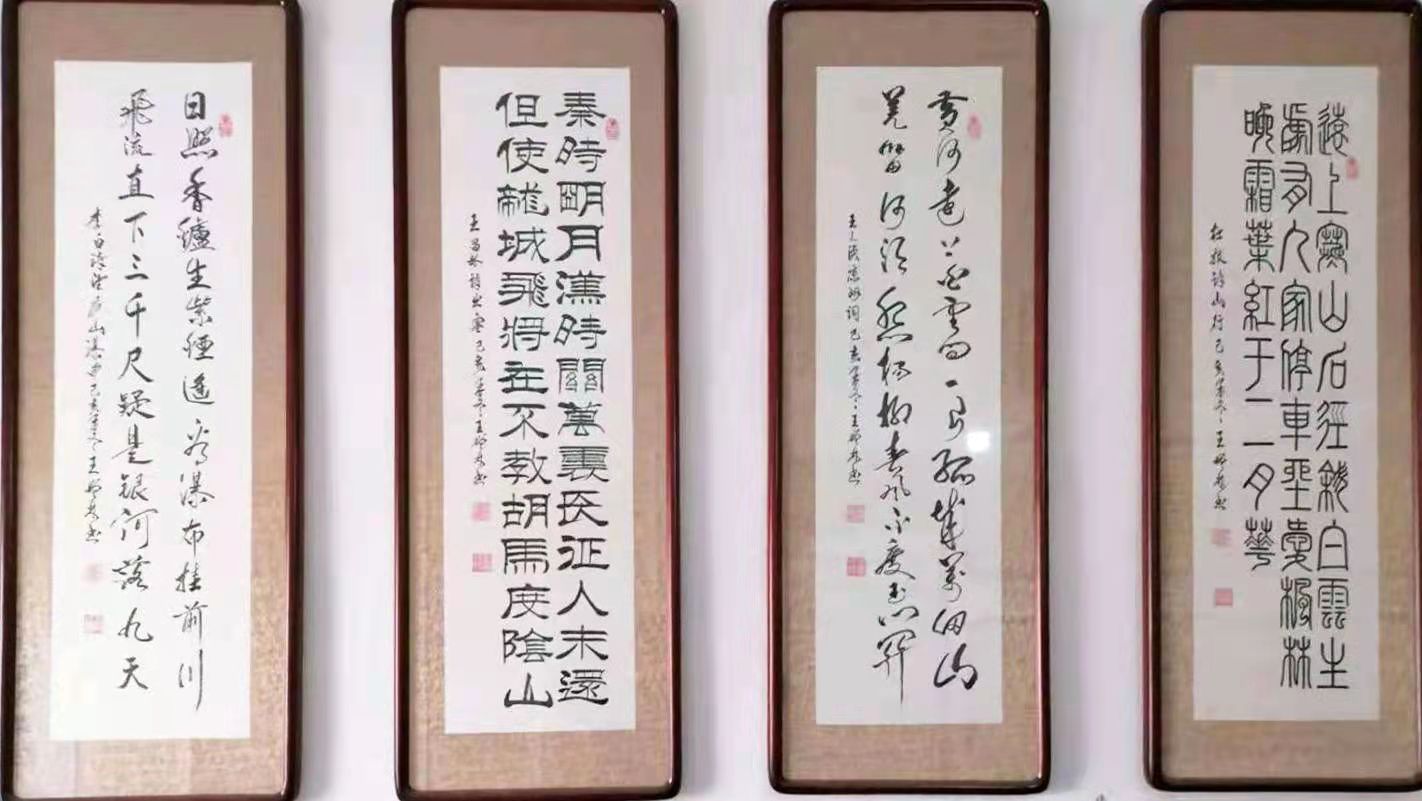 遠上寒山石徑斜白雲生
處有人家停車坐愛楓林
晚霜葉紅于二月華
杜牧詩山行己亥年冬王書
黃河遠上白雲間一片孤城萬仞山
羌笛何須怨楊柳春風不度玉門關
王之渙涼州詞己亥年冬王書
秦時明月漢時關萬裏長征人未還
但使龍城飛將在不教胡馬度陰山
王昌齡詩出塞己亥年冬王書
日照香鑪生紫煙遙看瀑布挂前川
飛流直下三千尺疑是銀河落九天
李白詩望廬山瀑布己亥年冬王書